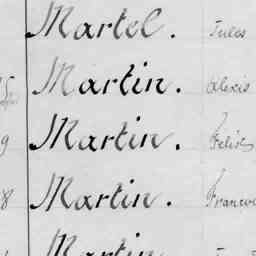 Martel. Jules
Martin. Alexis
9 Martin. Félix
8 Martin.
Martin